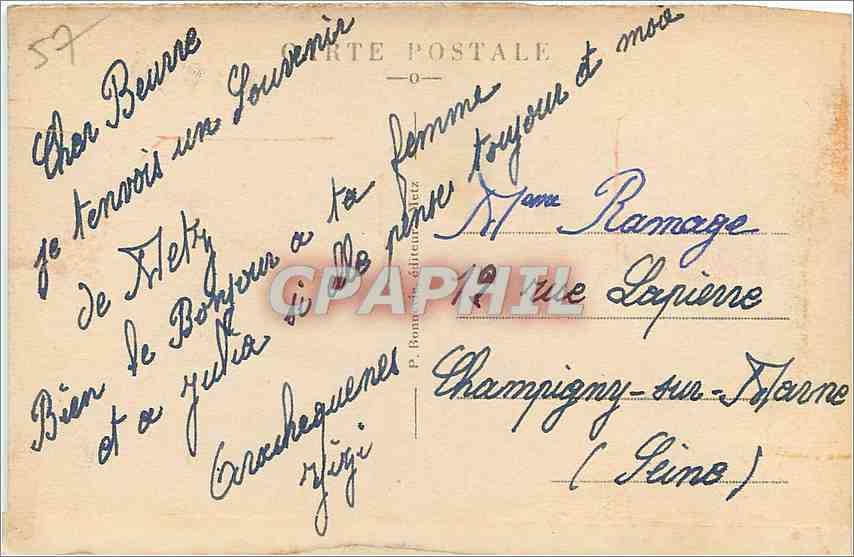 57
CARTE POSTALE
Cher Beurre
je tenvois un Souvenir
de Metz
Bien le Bonjour a ta femme
et a Julia si elle pense toujour et moie
Zizi
P. Bonnevie, éditeur, Metz
CPAPHIL
Meme Ramage
12 rue Lapierre
Champigny-sur-Marne
(Seine)